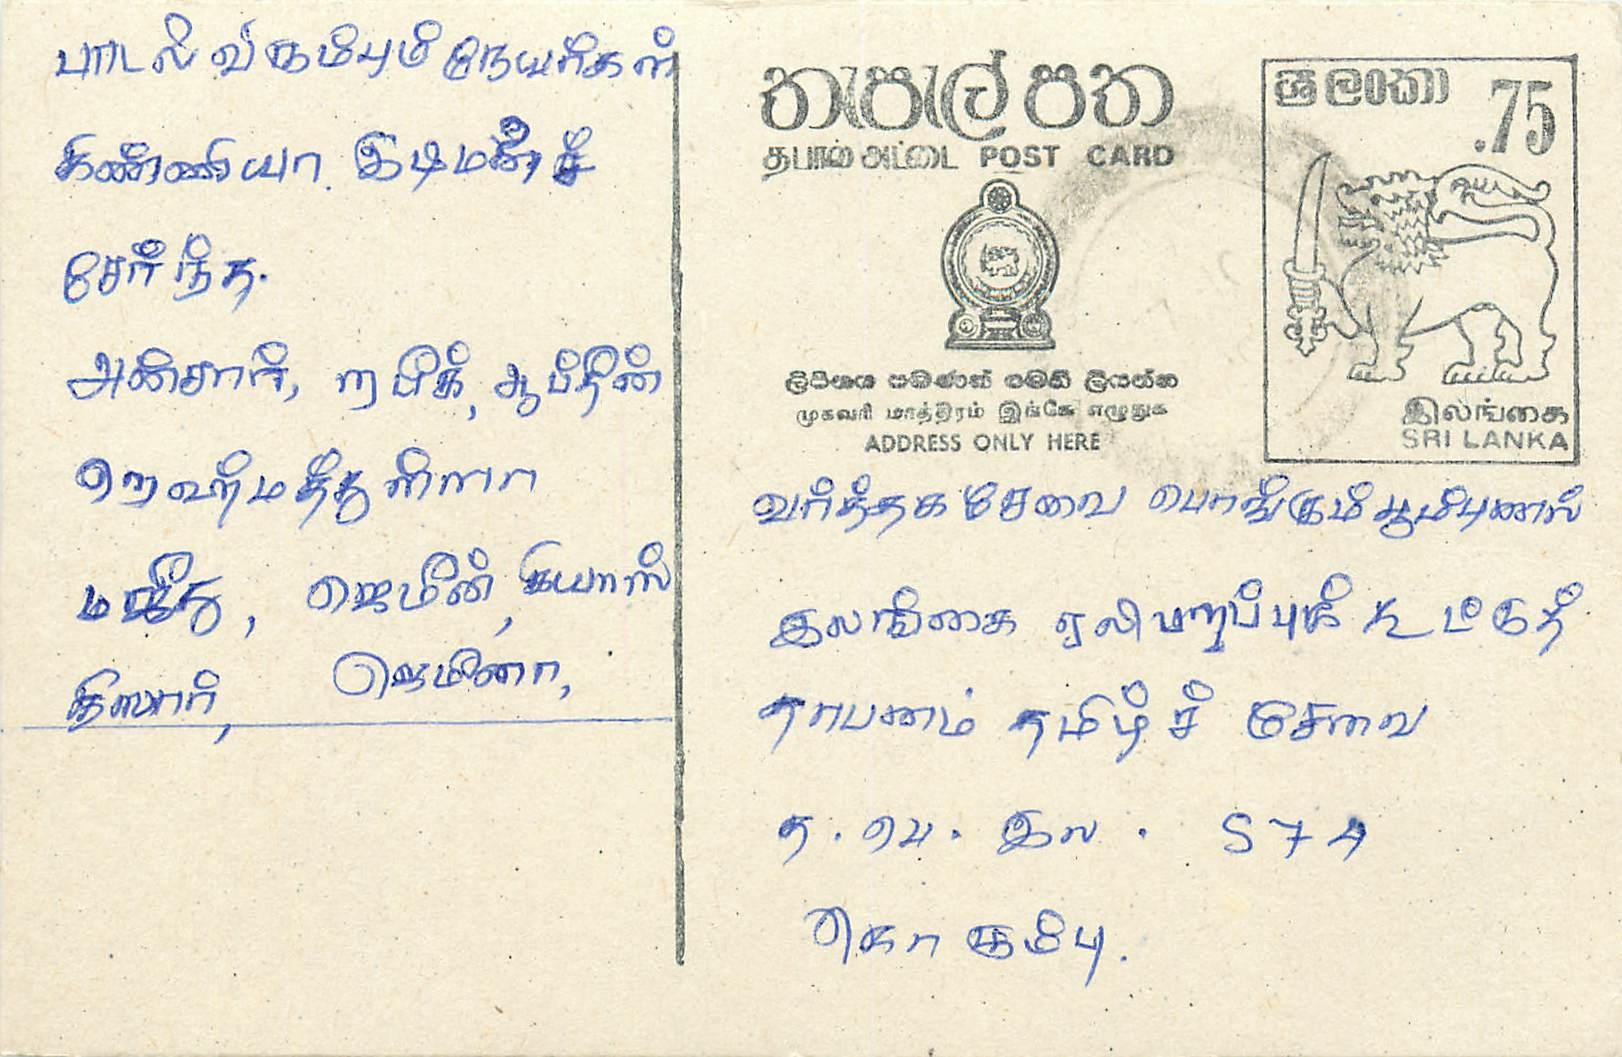 பாடல் விரும்பும் நேயர்கள்
கிண்ணியா இடிமன்ச்
சேர்ந்த.
அன்சார், றபீக், ஆப்தீன்
றெஹ்மத்தும்மா
மஜீது, ஜெமீன், கியாஸ்
நிஸார், ஜெமினா,
තැපැල් පත
தபால் அட்டை POST CARD
ශ්‍රී ලංකා .75
ලිපිනය පමණක් මෙහි ලියන්න
முகவரி மாத்திரம் இங்கே எழுதுக
ADDRESS ONLY HERE
இலங்கை
SRI LANKA
வர்த்தக சேவை பொங்கும் பூம்புனல்
இலங்கை ஒலிபரப்புக் கூட்டுத்
தாபனம் தமிழ்ச் சேவை
த. பெ. இல. 574
கொழும்பு.